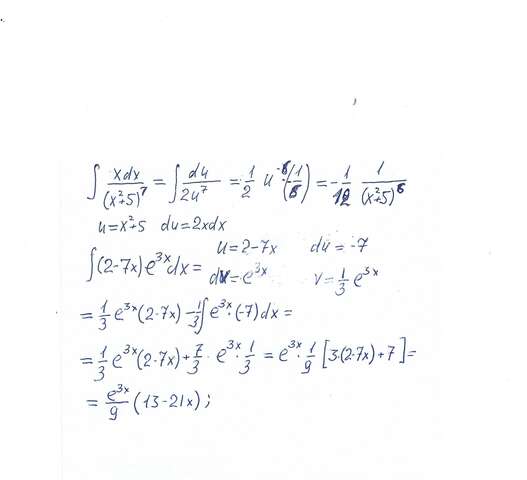 ∫ xdx/(x²+5)⁷ = ∫ du/2u⁷ = 1/2 u⁻⁶·(-1/6) = -1/12 1/(x²+5)⁶
u=x²+5 du=2xdx
∫(2-7x)e³ˣdx= u=2-7x du=-7
dv=e³ˣ v=1/3 e³ˣ
=1/3 e³ˣ(2-7x)-1/3∫e³ˣ·(-7)dx=
=1/3 e³ˣ(2-7x)+7/3·e³ˣ·1/3=e³ˣ·1/9[3(2-7x)+7]=
=e³ˣ/9 (13-21x);